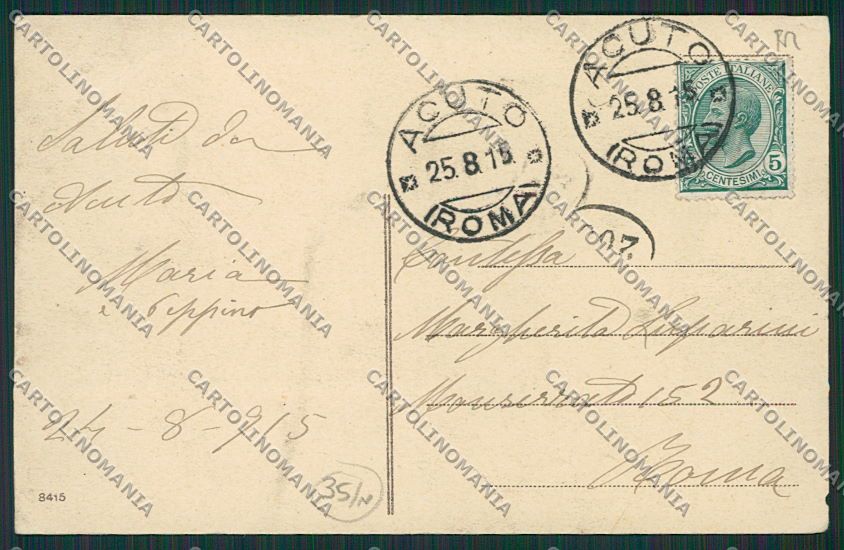 Saluti da
Acuto
Maria
e Peppino
24-8-915
8415
35/M
ACUTO
25.8.15
(ROMA)
ACUTO
25.8.15
(ROMA)
POSTE ITALIANE
5
CENTESIMI
207.
Contessa
Margherita Liparini
Monserrato 152
Roma
CARTOLINOMANIA